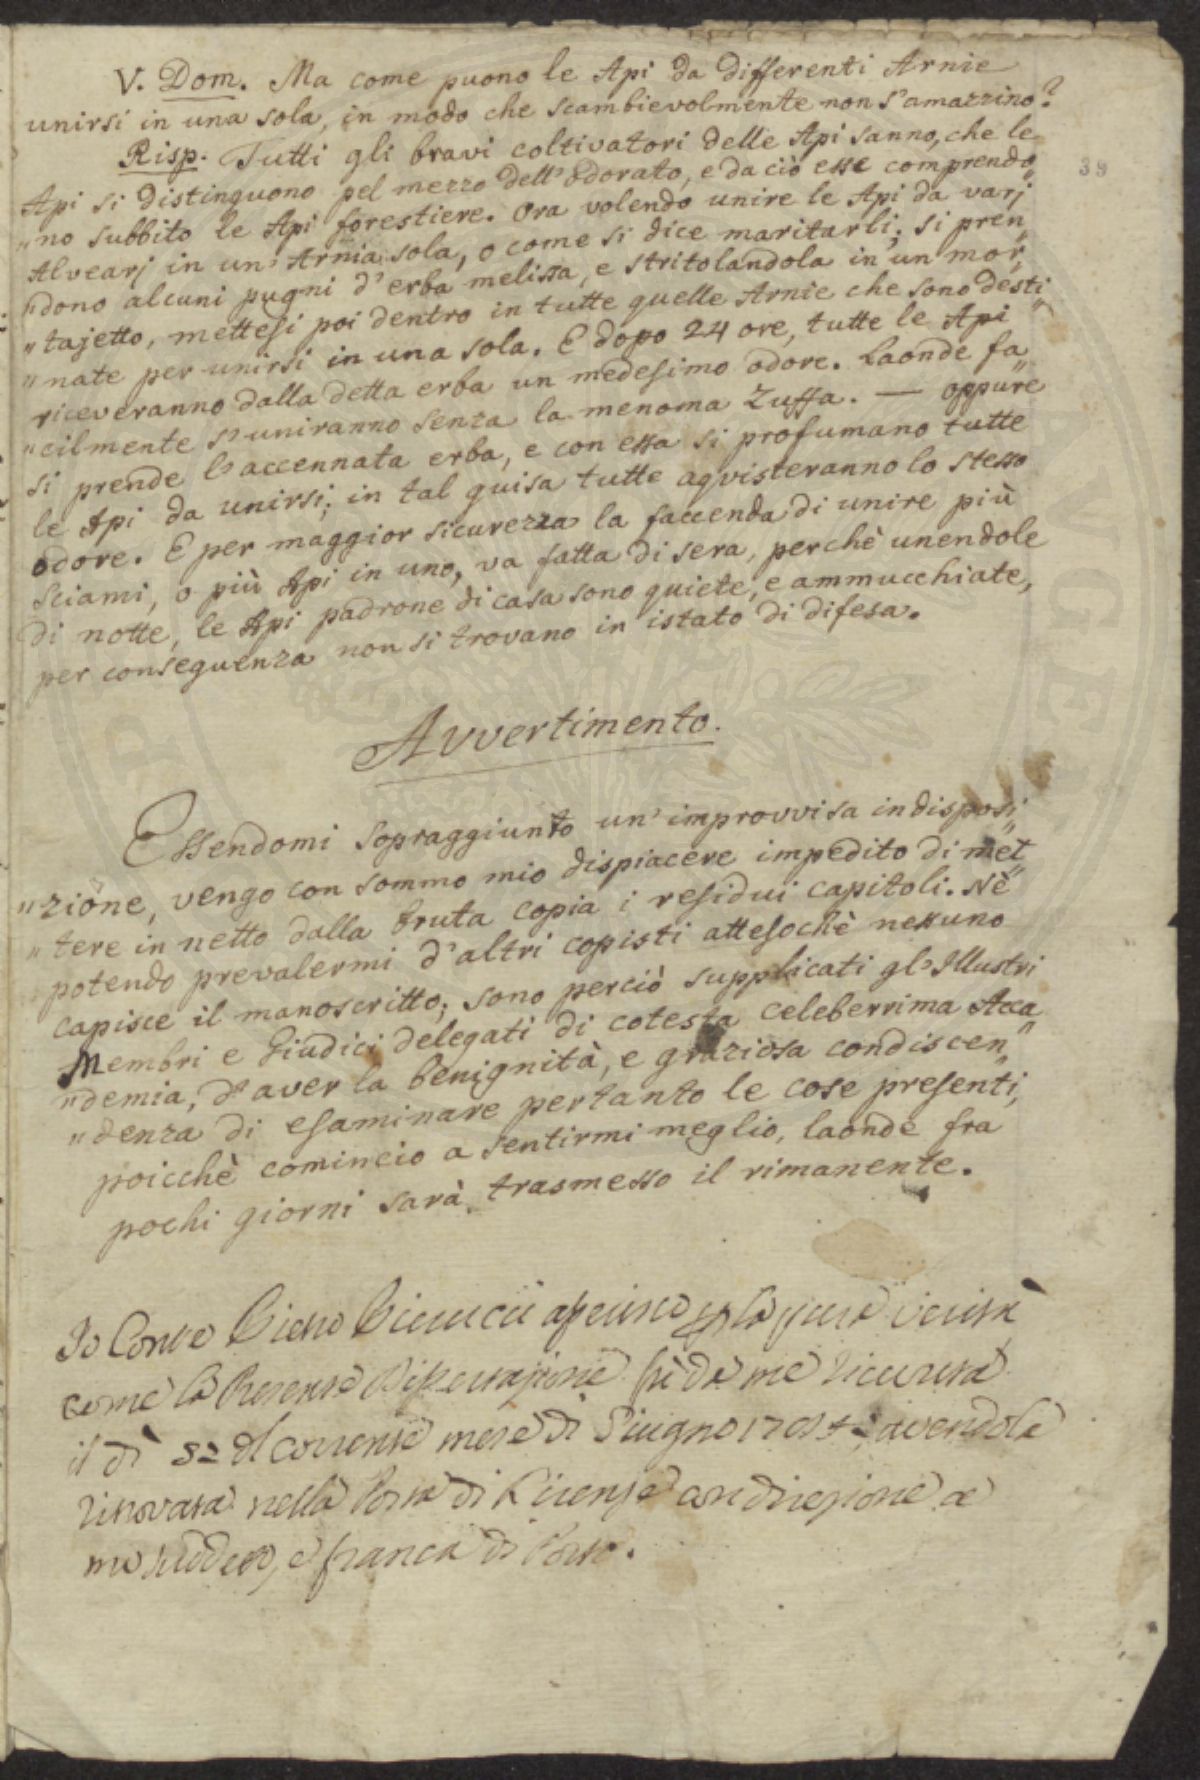 39
V. Dom. Ma come puono le Api da differenti Arnie
unirsi in una sola, in modo che scambievolmente non s'amazzino?
Risp. Tutti gli bravi coltivatori delle Api sanno, che le
Api si distinguono pel mezzo dell'Odorato, e da ciò esse comprendo„
„no subbito le Api forestiere. Ora volendo unire le Api da varj
Alvearj in un'Arnia sola, o come si dice maritarli; si pren„
„dono alcuni pugni d'erba melissa, e stritolandola in un mor„
„tajetto, mettesi poi dentro in tutte quelle Arnie che sono desti„
„nate per unirsi in una sola. E dopo 24 ore, tutte le Api
riceveranno dalla detta erba un medesimo odore. Laonde fa„
„cilmente s'uniranno senza la menoma Zuffa. — oppure
si prende l'accennata erba, e con essa si profumano tutte
le Api da unirsi; in tal guisa tutte aqvisteranno lo stesso
odore. E per maggior sicurezza la faccenda di unire più
Sciami, o più Api in uno, va fatta di sera, perchè unendole
di notte, le Api padrone di casa sono quiete, e ammucchiate,
per conseguenza non si trovano in istato di difesa.
Avvertimento.
Essendomi sopraggiunto un'improvvisa indisposi„
„zione, vengo con sommo mio dispiacere impedito di met„
„tere in netto dalla bruta copia i residui capitoli. Nè
potendo prevalermi d'altri copisti attesochè nessuno
capisce il manoscritto; sono perciò supplicati gl'Illustri
Membri e Giudici delegati di cotesta celeberrima Acca„
„demia, d'aver la benignità, e graziosa condiscen„
„denza di esaminare pertanto le cose presenti,
poicchè comincio a sentirmi meglio, laonde fra
pochi giorni sarà trasmesso il rimanente.
Io Conte Piero asserisco la pura verità
come la Presente Dissertazione fù da me riceuta
il dì corrente mese di Giugno avendola
ritrovata nella Posta di Firenze con direzione a
me e franca di Porto.